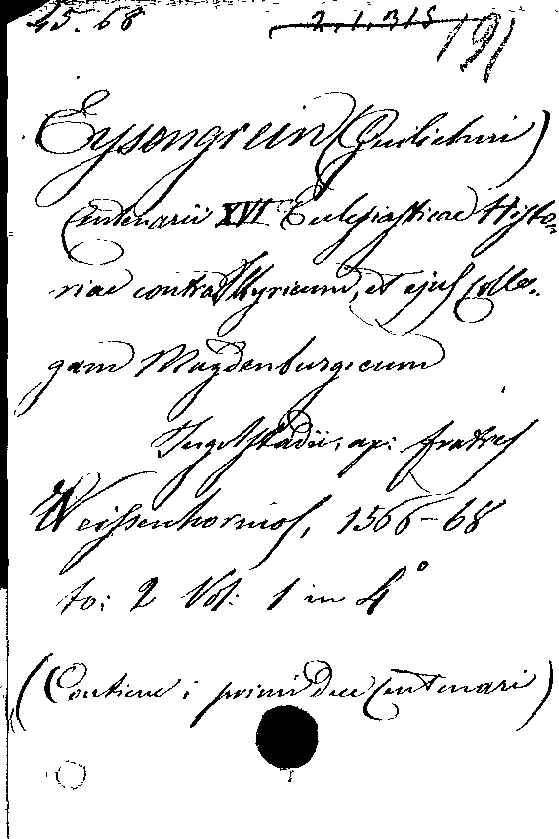 45.68 2.1.315 191
Eysengrein (Gulielmi)
Centenarii XVI Ecclesiasticae Histo-
riae contra Illyricum, et ejus Colle-
gam Magdenburgicum
Ingolstadii, ap: fratres
Weissenhornios, 1566-68
to: 2 Vol: 1 in 4°
(Contiene i primi due Centenari)